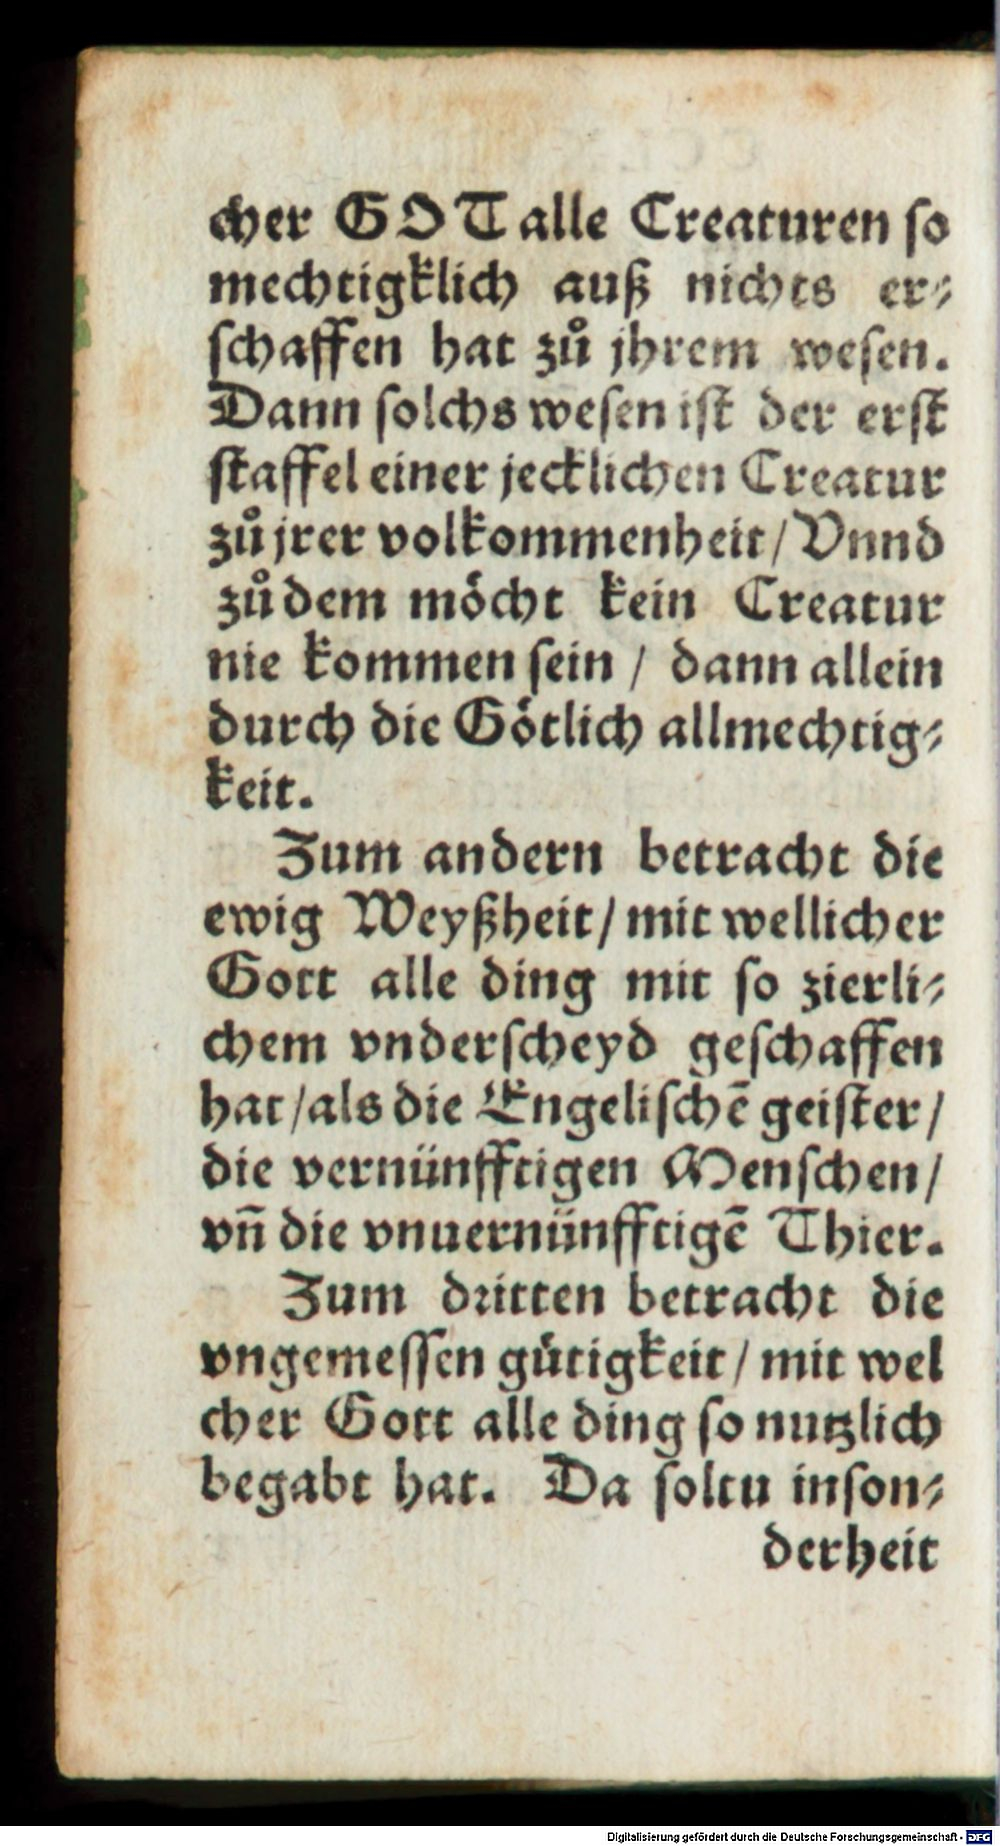 cher GOT alle Creaturen so
mechtigklich auß nichts er⸗
schaffen hat zů jhrem wesen.
Dann solchs wesen ist der erst
staffel einer jecklichen Creatur
zů jrer volkommenheit / Vnnd
zů dem moͤcht kein Creatur
nie kommen sein / dann allein
durch die Goͤtlich allmechtig⸗
keit.
Zum andern betracht die
ewig Weyßheit / mit wellicher
Gott alle ding mit so zierli⸗
chem vnderscheyd geschaffen
hat / als die Engelischē geister /
die vernünfftigen Menschen /
vñ die vnuernünfftigē Thier.
Zum dritten betracht die
vngemessen guͤtigkeit / mit wel
cher Gott alle ding so nutzlich
begabt hat. Da soltu inson⸗
derheit
Digitalisierung gefördert durch die Deutsche Forschungsgemeinschaft - DFG